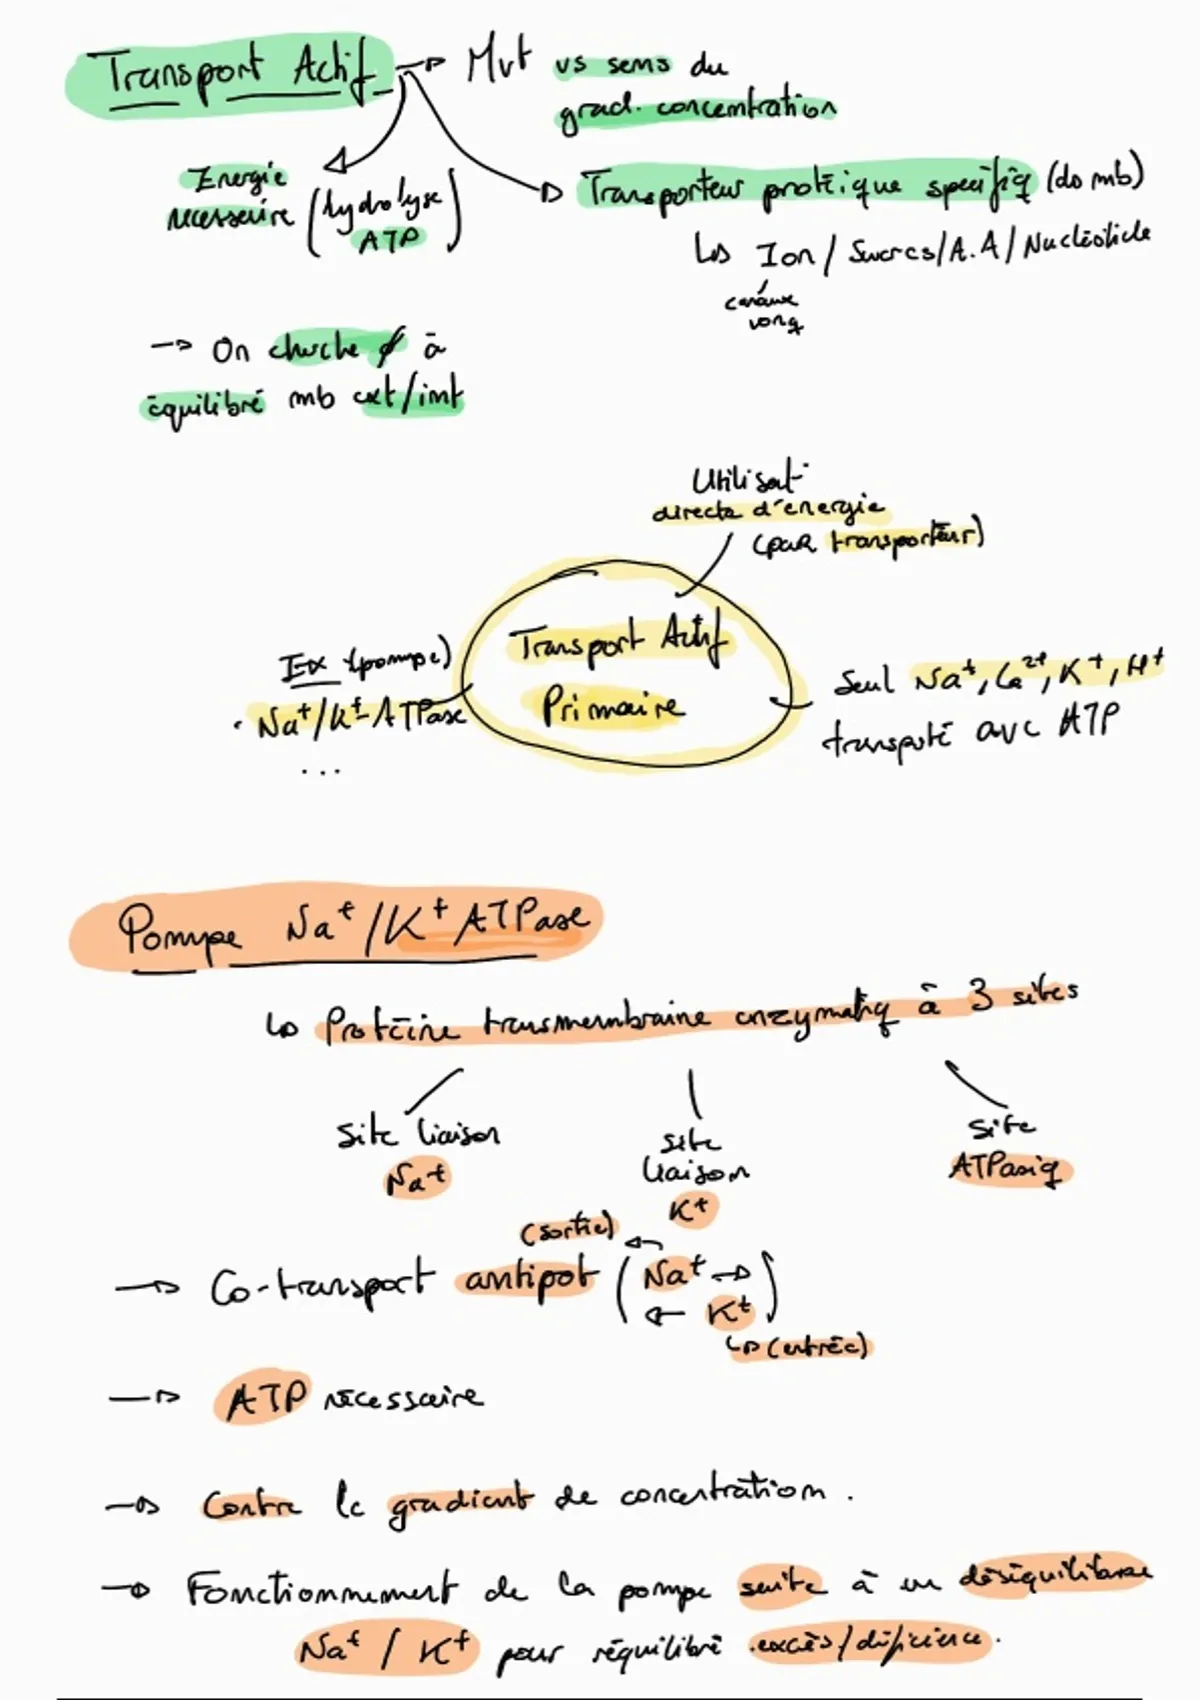 Transport Actif → Mvt vs sens du
grad. concentration
Energie
necessaire (hydrolyse
ATP)
Transporteur protéique specifiq (ds mb)
↳ Ion / Sucres / A.A / Nucléotide
canaux
ioniq
→ On cherche ∅ à
équilibré mb ext/int
Utilisat°
directe d'énergie
(par transporteur)
Transport Actif
Primaire
Ex (pompe)
• Na+/K+-ATPase
...
Seul Na+, Ca2+, K+, H+
transporté avc ATP
Pompe Na+/K+ ATPase
↳ Protéine transmembraine enzymatiq à 3 sites
Site liaison
Na+
site
liaison
K+
site
ATPasiq
(sortie)
→ Co-transport antipot (← Na+ →
← K+)
↳ (entrée)
→ ATP nécessaire
→ Contre le gradient de concentration.
→ Fonctionnement de la pompe suite à un déséquilibre
Na+ / K+ pour réquilibré excès/déficience.